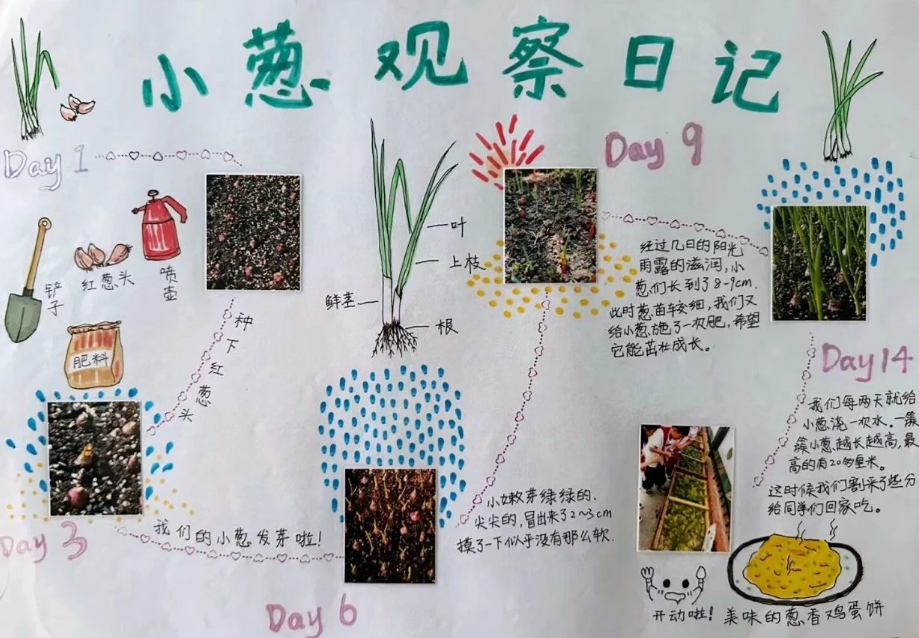 小葱观察日记
Day 1
铲子
红葱头
喷壶
肥料
种下红葱头
Day 3
我们的小葱发芽啦!
Day 6
叶
上枝
鲜茎
根
小嫩芽绿绿的,
尖尖的,冒出来了2~3cm
摸了一下似乎没有那么软.
Day 9
经过几日的阳光
雨露的滋润,小
葱们长到了8-9cm.
此时葱苗较细,我们又
给小葱施了一次肥,希望
它能茁壮成长。
Day 14
我们每两天就给
小葱浇一次水.一簇
簇小葱越长越高,最
高的有20多厘米。
这时候我们割来了些分
给同学们回家吃。
开动啦!
美味的葱香鸡蛋饼